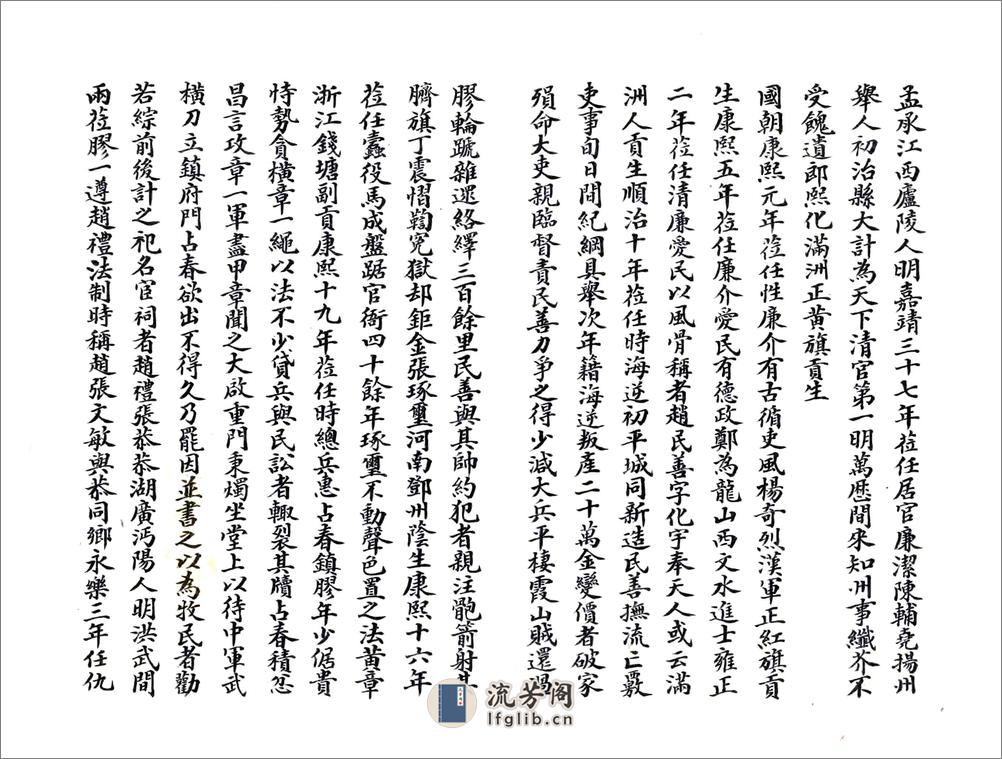 孟承江西廬陵人明嘉靖三十七年蒞任居官廉潔陳輔堯揚州
舉人初治縣大計為天下清官第一明萬歷間來知州事纖芥不
受餽遺郎熙化滿洲正黄旗貢生
國朝康熙元年蒞任性廉介有古循吏風楊奇烈漢軍正紅旗貢
生康熙五年蒞任廉介愛民有德政鄭為龍山西文水進士雍正
二年蒞任清廉愛民以風骨稱者趙民善字化宇奉天人或云滿
洲人貢生順治十年蒞任時海逆初平城同新造民善撫流亡覈
吏事旬日間紀綱具舉次年籍海逆叛産二十萬金變價者破家
殞命大吏親臨督責民善力爭之得少減大兵平棲霞山賊還過
膠輪蹏雜遝絡繹三百餘里民善與其帥約犯者親注骲箭射其
臍旗丁震慴鞫冤獄却鉅金張琢璽河南鄧州陰生康熙十六年
蒞任蠹役馬成盤踞官衙四十餘年琢璽不動聲色置之法黄章
浙江錢塘副貢康熙十九年蒞任時總兵惠占春鎮膠年少倨貴
恃勢貪橫章一繩以法不少貸兵與民訟者輙裂其牘占春積忿
昌言攻章一軍盡甲章聞之大啟重門秉燭坐堂上以待中軍武
橫刀立鎮府門占春欲出不得久乃罷因並書之以為牧民者勸
若綜前後計之祀名宦祠者趙禮張恭恭湖廣沔陽人明洪武間
兩蒞膠一遵趙禮法制時稱趙張文敏與恭同鄉永樂三年任仇
流芳阁
lfglib.cn